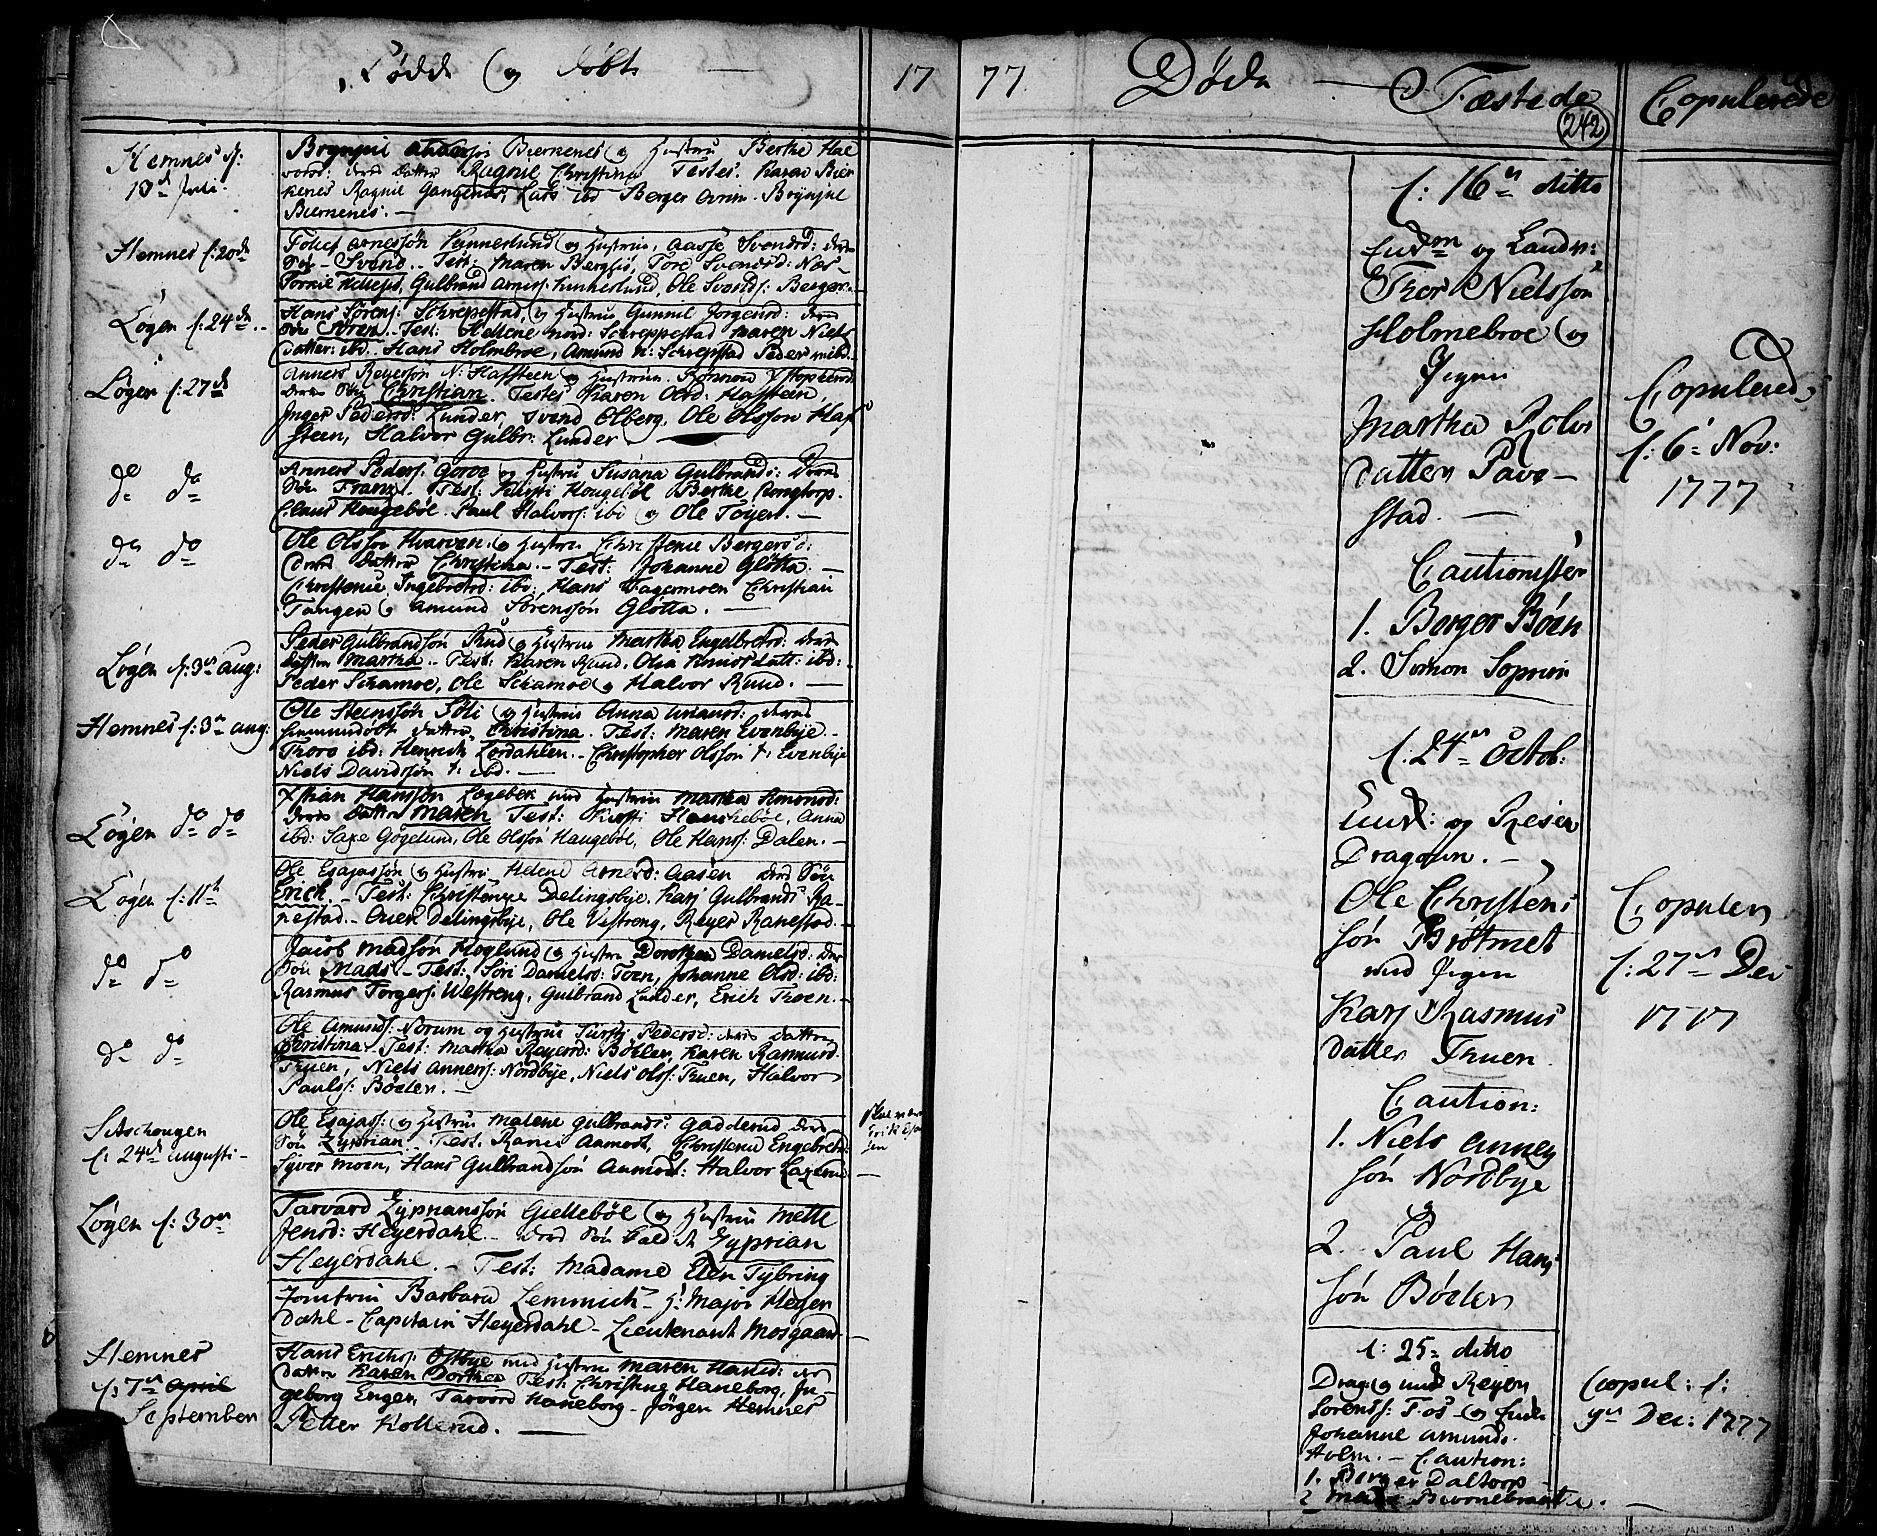 Fødde og døbte
1777
Døde
Fæstede
Copulerede
242
Hemnes d:
13d Juli.
Brynjul Anderssøn Biernenes og Hustru Berthe Hal
vords: deres datter Ragnil Christina Testes. Karen Bier
kenes Ragnil Gangenes, Lars ibd Berger Arnin. Brynjul
Biernenes. —
Hemnes f: 20de
Tolef Arnessøn Kinnerlund og Hustrue, Aasse Svendsd: deres
Søn Svend. Test: Maren Bergsiø, Tore Svendsd:
Gulbrand Arness: Kinnerlund, Ole Svends: Berger
Løgen f: 24de
Hans Sørens: Schrepestad, og Hustrue Gunnil Jørgensd: deres
Søn Søren. Test: Hellene nord: Schreppestad Maren Niels
datter: ibd. Hans Holmbroe, Amund n: Schrepstad Peder ibd
Løgen f: 27de
Anners Reyersøn N: Hafsteen og Hustrue Rønnou
deres Søn Christian. Testes Karen Olsd: Hafsteen,
Inger Pedersd: Lunder, Svend Olberg, Ole Olsson Haf
steen, Halvor Gulbr: Lunder
do do
Anners Peders: Gorve og Hustru Susana Gulbrands: deres
Søn Franz. Test: Kirsti Hougebøl Berthe Rongtorp.
Claus Hougebøl. Paul Halvors: ibd og Ole Toyen. —
do do
Ole Olssøn Huarven: og Hustrue Christenie Bergersd:
deres datter Christina. Test: Johanne Gløtta.
Christenie Ingebretsd: ibd: Hans Dagermoen Christian
Tangen og Amund Sørenssøn Gløtta. —
Løgen f: 3de aug:
Peder Gulbrandsøn Rud og Hustrue Martha Engelbretsd: deres
datter Martha. Test: Karen Ruud, Olea Knudsdatt: ibd:
Peder Schamoe, Ole Schamoe og Halvor Ruud. —
Hemnes f: 3de aug:
Ole Steenssøn Søli og Hustrue Anna deres
hiemmedøbt datter, Christina. Test: Maren Evenbye.
Thoro ibd: Henrich Lørdahlen. Christopher Olssøn t: Evenbye
Niels Davidssøn t: ibd. —
Løgen do do
Xstian Hanssøn Løgebek med Hustrue Martha Amonsd:
deres datter Maren Test: Kirsti Hougebøe, Anna
ibd: Saxe Gøgelund, Ole Olssøn Haugebøl, Ole Hanss: Dalen. —
Løgen f: 11te
Ole Esajassøn og Hustrue Helene Arnesd: Aasen deres Søn
Erich. Test: Christense Delingsbye, Karj Gulbrands Ra-
nestad. Ouen Delingsbye, Ole Vestreng, Reyer Ranestad.
do do
Jacob Madsøn Moglund og Hustrue Dorothea Danielsd: der
Søn Mads. Test: Siri Danielsd: Toen, Johanne Olsd: ibd:
Rasmus Torgers: Westreng, Gulbrand Lunder, Erich Thoen. —
do do
Ole Amunds: Norum og Hustrue Turstj Pedersd: deres datter
Christina. Test: Martha Reyersd: Bøhler, Karen Rasmusd:
Thuen, Niels Anners: Nordbye, Niels Olss: Thuen, Halvor
Paulss: Bøelen. —
Sitschougen
f: 24de augusti
Ole Esajass: og Hustrue Malene gulbrands: Gadderud deres
Søn Zyprian. Test: Ranei Aamodt, Christense Engebretsd:
Syver Moen, Hans Gulbrandsøn Aamodt: Halvor
Skal være
Erik Esa
sen
Løgen f: 30de
Tarvard Zypriansson Gullebøe og Hustrue Mette
Jensd: Heyerdahl. deres Søn kaldet Zyprian
Heyerdahl. Test: Madame Elen Tybring
Jomfrue Barbara Lemmich Hr Major Heyer
dahl Capitain Heyerdahl Lieutenant Mosgaard
Hemnes
f: 7de April
September
Hans Erichs: Østbye med Hustrue Maren Hansd: der
datter Karen Dorthea Test: Christine Haneborg. In-
geborg Enger, Tarvord Haneborg Jørgen Hemnes
Petter Kollerud. —
f: 16de ditto
Eudm og Landv:
Thor Nielssøn
Holmebroe og
Pigen
Martha Rolvs
datter Pave-
stad. —
Cautionister
1. Berger Bøen
2. Simon Soprin
Copulered
f: 6te Nov:
1777
f: 24de Octob:
og Reser
Dragoun. —
Ole Christens
søn Brøtmet
med Pigen
Karj Rasmus
datter Thuen
Caution:
1. Niels Anners
søn Nordbye
2. Paul Hans
søn Bøelen
Copuler
f: 27de Dec
1777
f: 25de ditto
Drag: og Reyer
Sørenss: Fos og
Johanne Amunds.
Holm. — Caution:
1. Berger Daltorp
2 Biørnebraaten.
Copul: f:
9de Dec: 1777